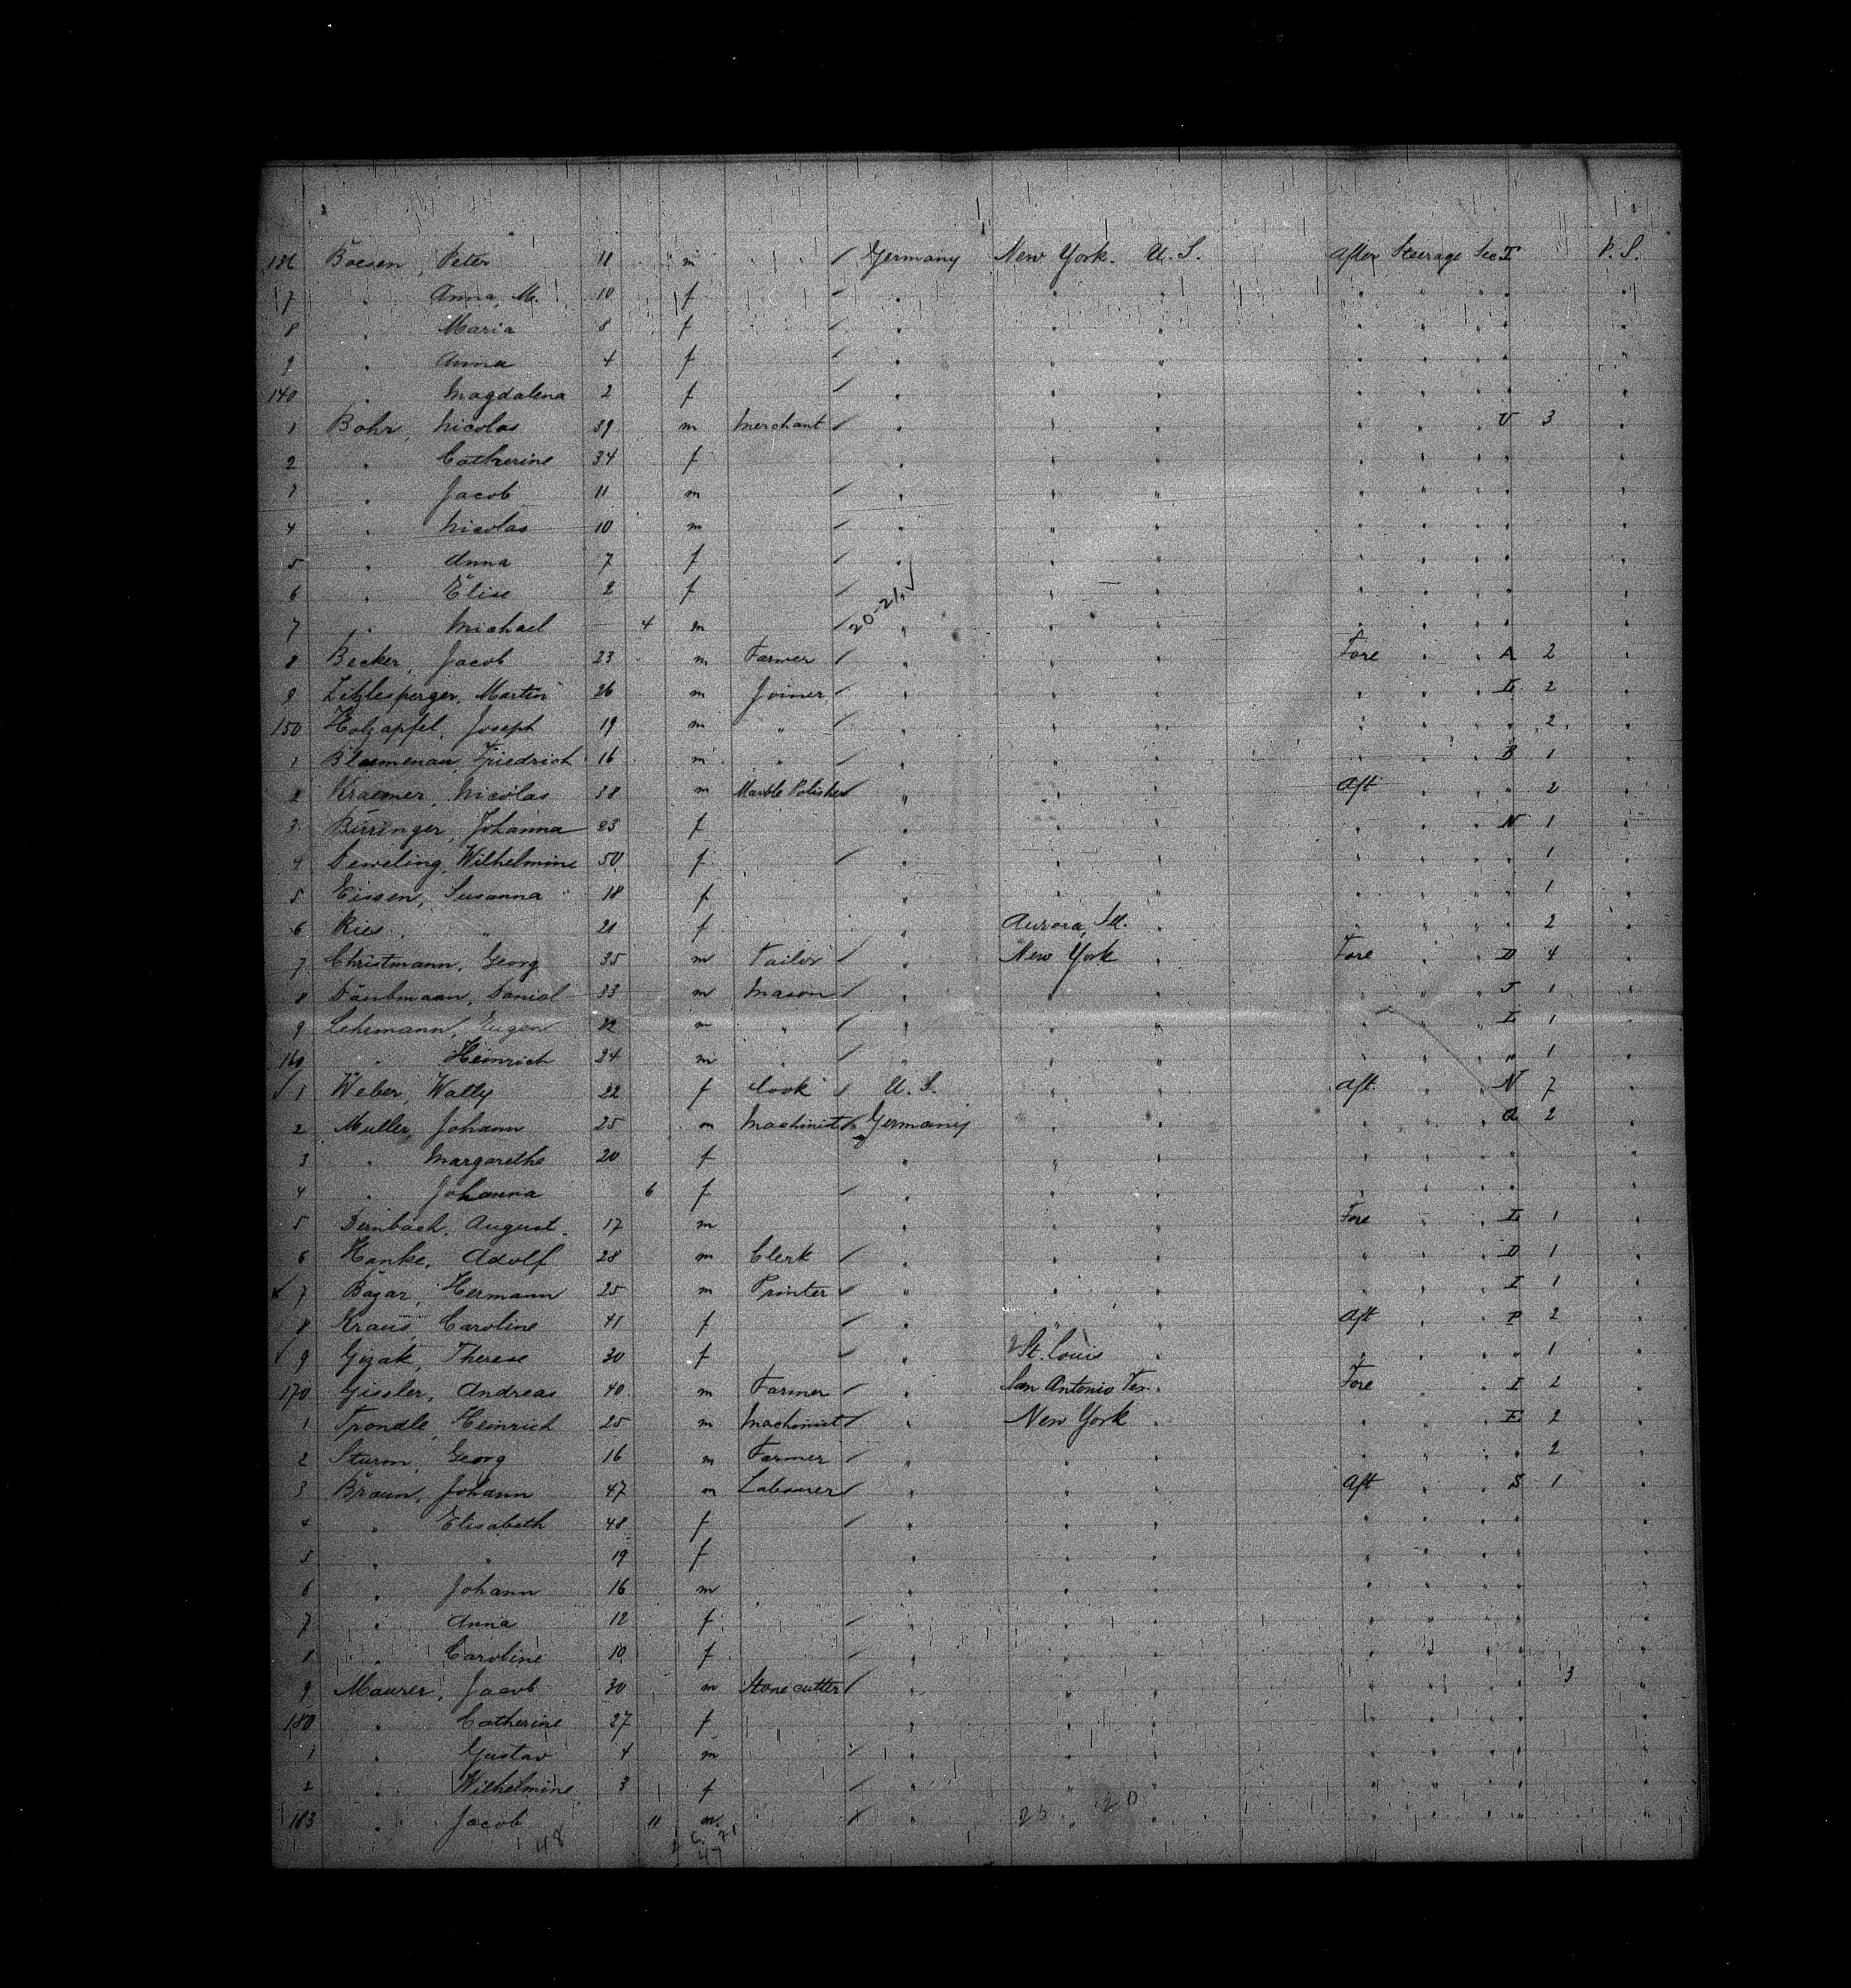 136 Boesen, Peter 11 m / Germany New York. U.S. After Steerage Sec I P.S.
7 " Anna M. 10 f / " " " " " " "
8 " Maria 8 f / " " " " " " "
9 " Anna 4 f / " " " " " " "
140 " Magdalena 2 f / " " " " " " "
1 Bohr, Nicolas 39 m Merchant / " " " " " U 3 "
2 " Catherine 34 f " " " " " " " "
3 " Jacob 11 m / " " " " " " " "
4 " Nicolas 10 m / " " " " " " " "
5 " Anna 7 f / " " " " " " " "
6 " Elise 2 f / " " " " " " " "
7 " Michael — 4 m / 20-21 √ " " " " " " " "
8 Becker, Jacob 23 m Farmer / " " " Fore " " A 2 "
9 Zitzlesperger, Martin 26 m Joiner / " " " " " " L 2 "
150 Holzapfel, Joseph 19 m " / " " " " " " " 2 "
1 Blumenau, Friedrich 16 m " / " " " " " " B 1 "
2 Kraemer, Nicolas 38 m Marble Polisher / " " " Aft " " " 2 "
3 Birringer, Johanna 23 f " " " " " " N 1 "
4 Deweling, Wilhelmine 50 f / " " " " " " " 1 "
5 Eissen, Susanna 18 f " " " " " " " 1 "
6 Ries, " 21 f " Aurora, Ill. " " " " " 2 "
7 Christmann, Georg 35 m Tailor / " New York " Fore " " D 4 "
8 Däubmann, Daniel 33 m Mason / " " " " " " J 1 "
9 Lehemann, Eugen 22 m " / " " " " " " L 1 "
160 " Heinrich 24 m " / " " " " " " " 1 "
√ 1 Weber, Wally 22 f Cook / U.S. " " Aft. " " N 7 "
2 Muller, Johann 25 m Machinist / Germany " " " " " Q 2 "
3 " Margarethe 20 f " " " " " " " "
4 " Johanna 6 f / " " " " " " " "
5 Dernbach, August 17 m " " " Fore " " L 1 "
6 Hanke, Adolf 28 m Clerk / " " " " " " D 1 "
7 Bagar, Hermann 25 m Printer / " " " " " " I 1 "
8 Kraus, Caroline 41 f / " " " Aft " " P 2 "
√ 9 Gizak, Therese 30 f / " St. Louis " " " " " 1 "
170 Gissler, Andreas 40 m Farmer / " San Antonio Tex. " Fore " " I 2 "
1 Trondle, Heinrich 25 m Machinist / " New York " " " " E 2 "
2 Sturm, Georg 16 m Farmer / " " " " " " " 2 "
3 Braun, Johann 47 m Labourer / " " " Aft " " S 1 "
4 " Elisabeth 48 f / " " " " " " " "
5 " " 19 f " " " " " " " "
6 " Johann 16 m " " " " " " " "
7 " Anna 12 f / " " " " " " " "
8 " Caroline 10 f / " " " " " " " "
9 Maurer, Jacob 30 m Stonecutter / " " " " " " " 3 "
180 " Catherine 27 f " " " " " " " "
1 " Gustav 4 m / " " " " " " " "
2 " Wilhelmine 3 f / " " " " " " " "
183 " Jacob 11 m / " " " " " " "
25 20
48
47